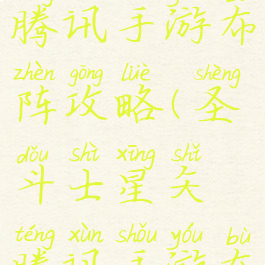 腾讯手游布
zhèn gōng lüè shèng
阵攻略(圣
dǒu shì xīng shǐ
斗士星矢
téng xùn shǒu yóu bù
腾讯手游布